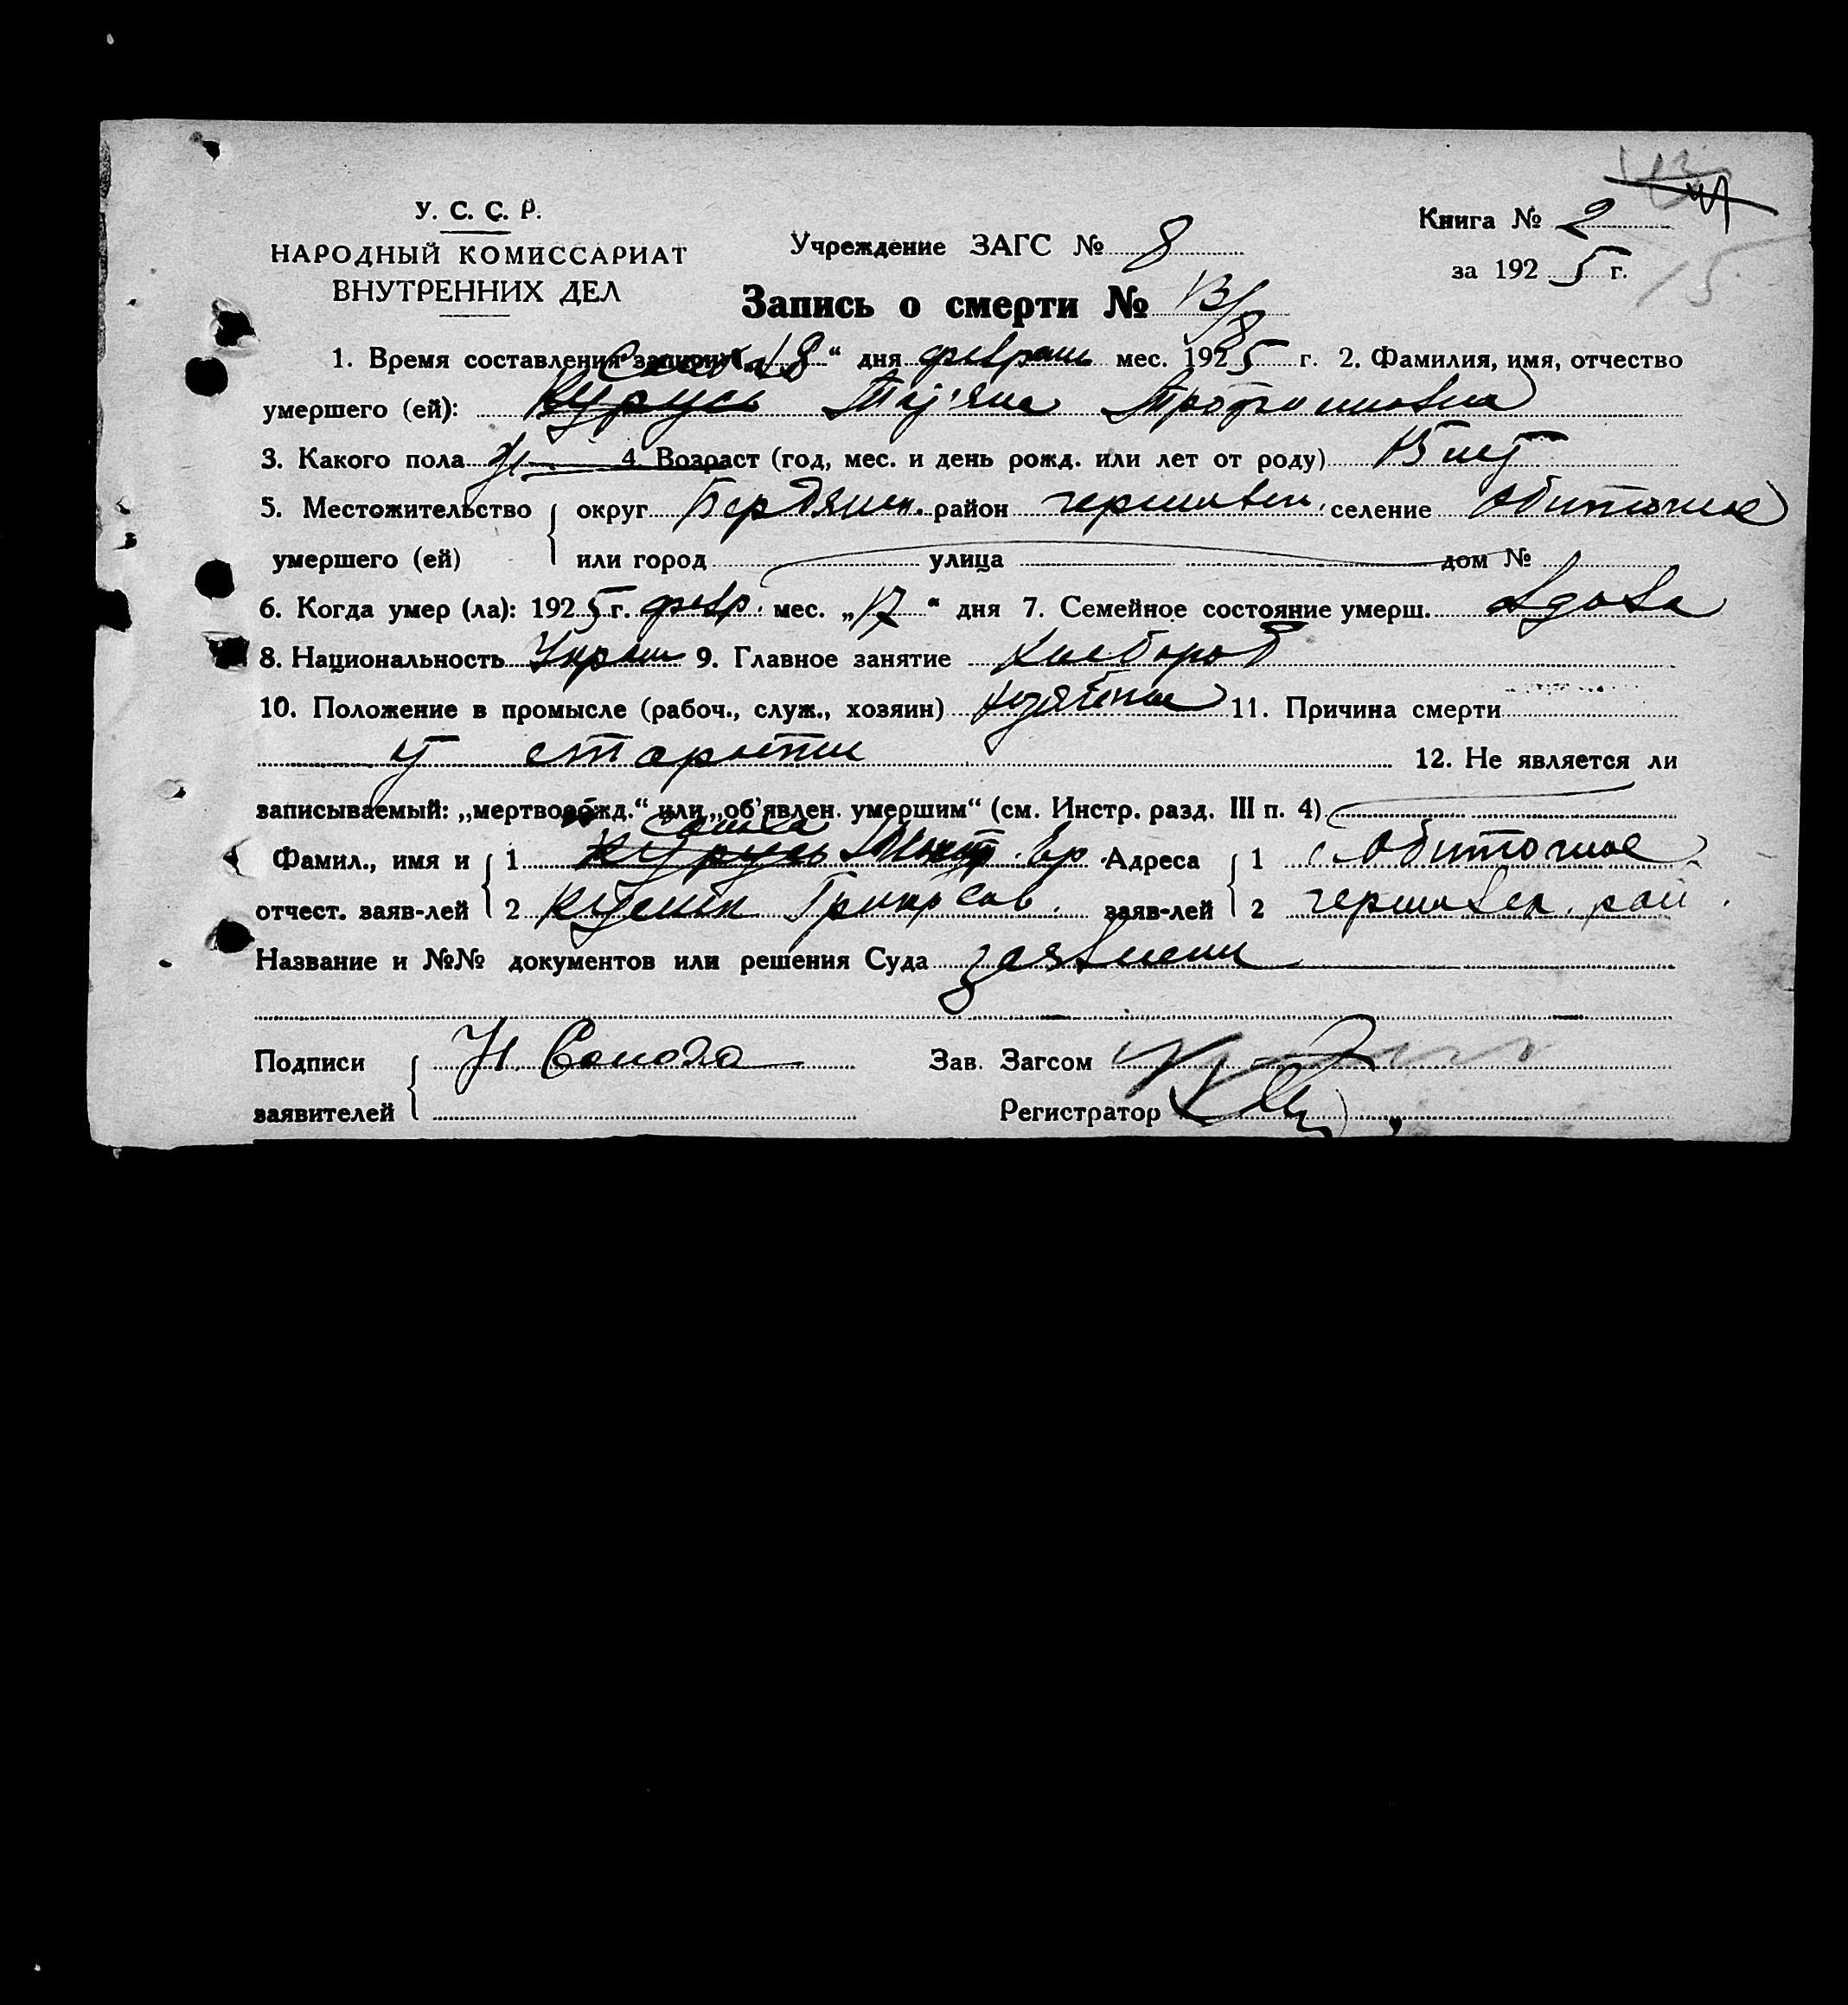 У. С. С. Р.
НАРОДНЫЙ КОМИССАРИАТ
ВНУТРЕННИХ ДЕЛ
Учреждение ЗАГС № 8
Книга № 2
за 1925 г.
15
Запись о смерти № 13/8
1. Время составления записи „18“ дня февраля мес. 1925 г. 2. Фамилия, имя, отчество
умершего (ей): Курусь Тат'яна Трофимовна
3. Какого пола ж. 4. Возраст (год, мес. и день рожд. или лет от роду) лет
5. Местожительство округ Бердянск. район черниговск. селение Обиточное
умершего (ей) или город улица дом №
6. Когда умер (ла): 1925 г. февр. мес. „17“ дня 7. Семейное состояние умерш. вдова
8. Национальность Украин 9. Главное занятие хлебороб
10. Положение в промысле (рабоч., служ., хозяин) хозяйка 11. Причина смерти
от старости 12. Не является ли
записываемый: „мертворожд.“ или „об'явлен. умершим“ (см. Инстр. разд. III п. 4)
Фамил., имя и 1 Курусь Адреса 1 с. Обиточное
отчест. заяв-лей 2 заяв-лей 2 черниговск. рай.
Название и №№ документов или решения Суда заявление
Подписи Зав. Загсом
заявителей Регистратор